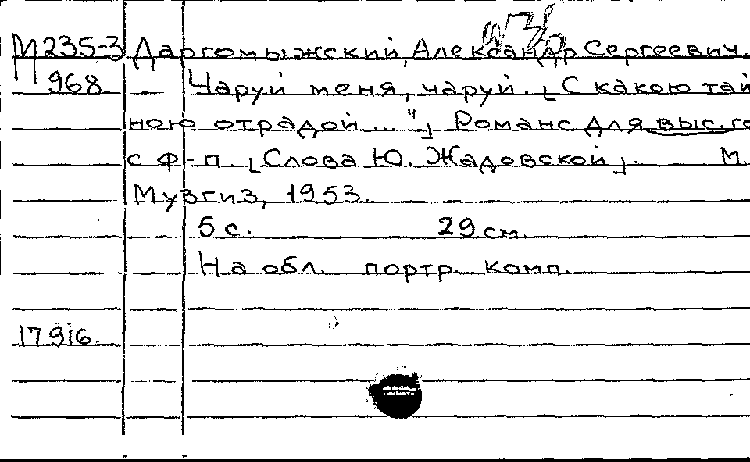 М235-3 Даргомыжский, Александр Сергеевич.
968 Чаруй меня, чаруй. [С какою тай
ною отрадой..."] Романс для выс. го
с ф-п. [Слова Ю. Жадовской]. М.
Музгиз, 1953.
5 с. 29 см.
На обл. портр. комп.
17916.